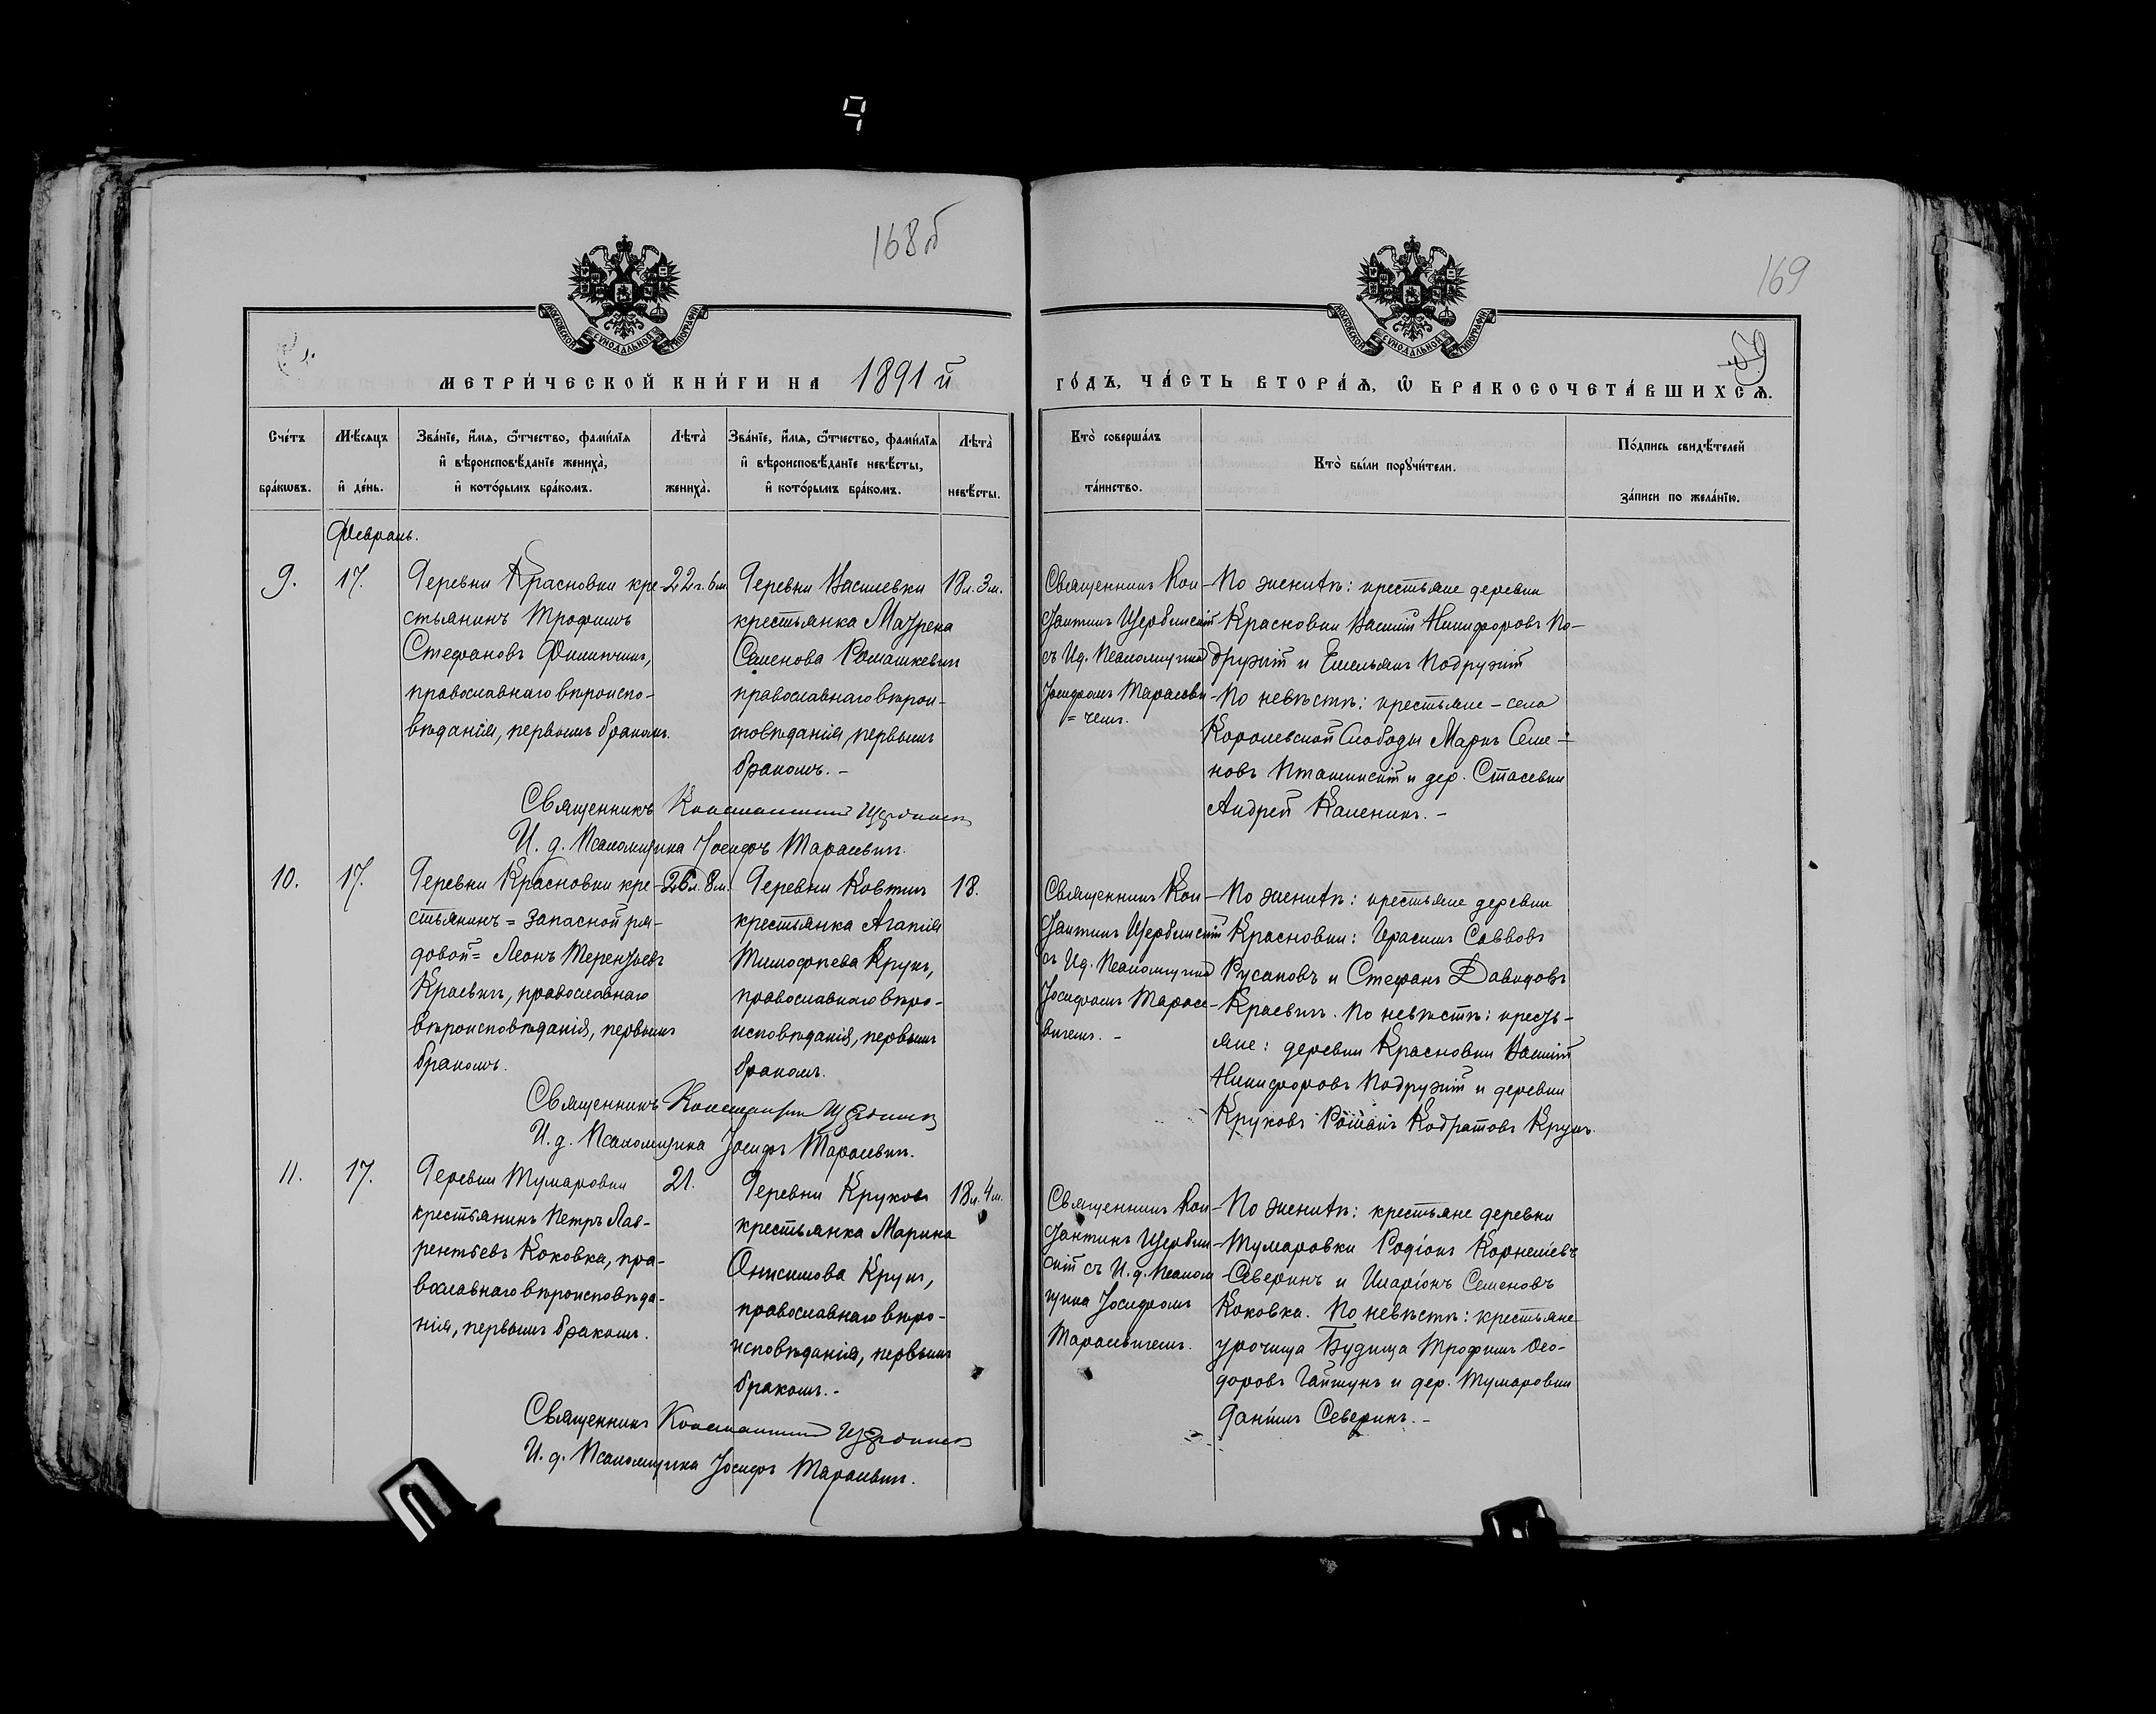 9
168 б
169
МОСКОВСКОЙ СУНОДАЛЬНОЙ ТИПОГРАФІИ
МОСКОВСКОЙ СУНОДАЛЬНОЙ ТИПОГРАФІИ
МЕТРИ́ЧЕСКОЙ КНИ́ГИ НА 1891 й
ГО́ДЪ, ЧА́СТЬ ВТОРА́Ѧ, Ѽ БРАКОСОЧЕТА́ВШИХСѦ.
Сче́тъ бра́кѡвъ.
Мѣ́сяцъ и҆ де́нь.
Зва́нїе, и҆́мѧ, ѻ҆́тчество, фами́лїѧ
и҆ вѣроисповѣ́данїе жениха̀,
и҆ кото́рымъ бра́комъ.
Лѣта̀ жениха̀.
Зва́нїе, и҆́мѧ, ѻ҆́тчество, фами́лїѧ
и҆ вѣроисповѣ́данїе невѣ́сты,
и҆ кото́рымъ бра́комъ.
Лѣта̀ невѣ́сты.
Кто̀ соверша́лъ та́инство.
Кто̀ бы́ли порꙋчи́тели.
По́дпись свидѣ́телей за́писи по жела́нїю.
Февраль.
9.
17.
Деревни Красновки кре-
стьянинъ Трофимъ
Стефановъ Филипчикъ,
православнаго вѣроиспо-
вѣданія, первымъ бракомъ.
22 г. 6 м.
Деревни Василевки
крестьянка Мазрена
Семенова Ромашкевич
православнаго вѣрои-
сповѣданія, первымъ
бракомъ. -
18 л. 3 м.
Священникъ Кон-
стантинъ Щербинскій
съ И.д. Псаломщика
Іосифомъ Тарасеви-
=чемъ.
По женихѣ: крестьяне деревни
Красновки Василій Никифоровъ По-
дружій и Емельянъ Подружій
По невѣстѣ: крестьяне - села
Королевской Слободы Маркъ Семе-
новъ Пташинскій и дер. Стасевки
Андрей Каленикъ. -
Священникъ Константинъ Щербинскій
И. д. Псаломщика Іосифъ Тарасевичъ.
10.
17.
Деревни Красновки кре-
стьянинъ = запасной ря-
довой = Леонъ Терентьевъ
Краевичъ, православнаго
вѣроисповѣданія, первымъ
бракомъ.
26 л. 8 м.
Деревни Ковтич
крестьянка Агапія
Тимофеева Крукъ,
православнаго вѣро-
исповѣданія, первымъ
бракомъ.
18.
Священникъ Кон-
стантинъ Щербинскій
съ И.д. Псаломщика
Іосифомъ Тарасе-
вичемъ. -
По женихѣ: крестьяне деревни
Красновки: Ирасимъ Саввовъ
Русаковъ и Стефанъ Давидовъ
Краевичъ. По невѣстѣ: крестья-
яне: деревни Красновки Василій
Никифоровъ Подружій и деревни
Круковъ Романъ Кодратовъ Крукъ.
Священникъ Константинъ Щербинскій
И. д. Псаломщика Іосифъ Тарасевичъ.
11.
17.
Деревни Тумаровки
крестьянинъ Петръ Лав-
рентьевъ Коковка, пра-
вославнаго вѣроисповѣда-
нія, первымъ бракомъ.
21.
Деревни Круковъ
крестьянка Марина
Онисимова Крукъ,
православнаго вѣро-
исповѣданія, первымъ
бракомъ. -
18 л. 4 м.
Священникъ Кон-
стантинъ Щербин-
скій съ И. д. Псалом-
щика Іосифомъ
Тарасевичемъ.
По женихѣ: крестьяне деревни
Тумаровки Родіонъ Корнеліевъ
Северинъ и Иларіонъ Семеновъ
Коковка. По невѣстѣ: крестьяне
урочища Будища Трофимъ Ѳео-
доровъ Гайтунъ и дер. Тумаровки
Даніилъ Северинъ. -
Священникъ Константинъ Щербинскій
И. д. Псаломщика Іосифъ Тарасевичъ.